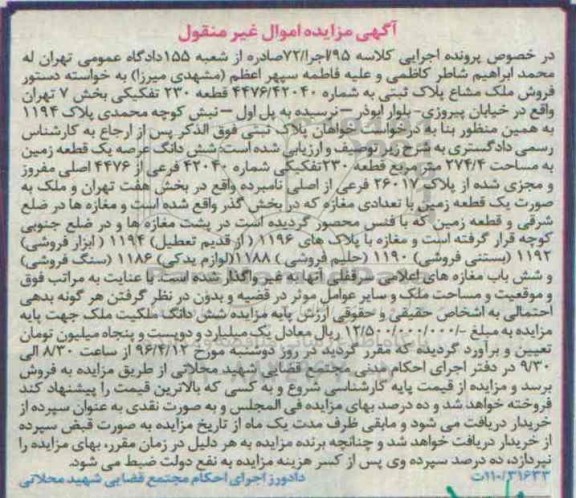 آگهی مزایده اموال غیر منقول
در خصوص پرونده اجرایی کلاسه ۹۵/اجرا/۷۲صادره از شعبه ۱۵۵دادگاه عمومی تهران له
محمد ابراهیم شاطر کاظمی و علیه فاطمه سپهر اعظم (مشهدی میرزا) به خواسته دستور
فروش ملک مشاع پلاک ثبتی به شماره ۴۴۷۶/۴۲۰۴۰ قطعه ۲۳۰ تفکیکی بخش ۷ تهران
واقع در خیابان پیروزی- بلوار ابوذر – نرسیده به پل اول – نبش کوچه محمدی پلاک ۱۱۹۴
به همین منظور بنا به درخواست خواهان پلاک ثبتی فوق الذکر پس از ارجاع به کارشناس
رسمی دادگستری به شرح زیر توصیف و ارزیابی شده است: شش دانگ عرصه یک قطعه زمین
به مساحت ۲۷۴/۴ متر مربع قطعه ۲۳۰تفکیکی شماره ۴۲۰۴۰ فرعی از ۴۴۷۶ اصلی مفروز
و مجزی شده از پلاک ۲۶۰۱۷ فرعی از اصلی نامبرده واقع در بخش هفت تهران و ملک به
صورت یک قطعه زمین با تعدادی مغازه که در بخش گذر واقع شده است و مغازه ها در ضلع
شرقی و قطعه زمین که با فنس محصور گردیده است در پشت مغازه ها و در ضلع جنوبی
کوچه قرار گرفته است و مغازه با پلاک های ۱۱۹۶ (از قدیم تعطیل) ۱۱۹۴ (ابزار فروشی)
۱۱۹۲ (بستنی فروشی) ۱۱۹۰ (حلیم فروشی) ۱۱۸۸(لوازم یدکی) ۱۱۸۶ (سنگ فروشی)
و شش باب مغازه های اعلامی سرقفلی آنها به غیر واگذار شده است. با عنایت به مراتب فوق
و موقعیت و مساحت ملک و سایر عوامل موثر در قضیه و بدون در نظر گرفتن هر گونه بدهی
احتمالی به اشخاص حقیقی و حقوقی ارزش پایه مزایده شش دانگ ملکیت ملک جهت پایه
مزایده به مبلغ -/۱۲/۵۰۰/۰۰۰/۰۰۰ ریال معادل یک میلیارد و دویست و پنجاه میلیون تومان
تعیین و برآورد گردیده که مقرر گردید در روز دوشنبه مورخ ۹۶/۴/۱۲ از ساعت ۸/۳۰ الی
۹/۳۰ در دفتر اجرای احکام مدنی مجتمع قضایی شهید محلاتی از طریق مزایده به فروش
برسد و مزایده از قیمت پایه کارشناسی شروع و به کسی که بالاترین قیمت را پیشنهاد کند
فروخته خواهد شد و ده درصد بهای مزایده فی المجلس و به صورت نقدی به عنوان سپرده از
خریدار دریافت می شود و مابقی ظرف مدت یک ماه از تاریخ مزایده به صورت قبض سپرده
از خریدار دریافت خواهد شد و چنانچه برنده مزایده به هر دلیل در زمان مقرر، بهای مزایده را
نپردازد، ده درصد سپرده وی پس از کسر هزینه مزایده به نفع دولت ضبط می شود.
۱۱۰/۳۱۶۳۳ت دادورز اجرای احکام مجتمع قضایی شهید محلاتی